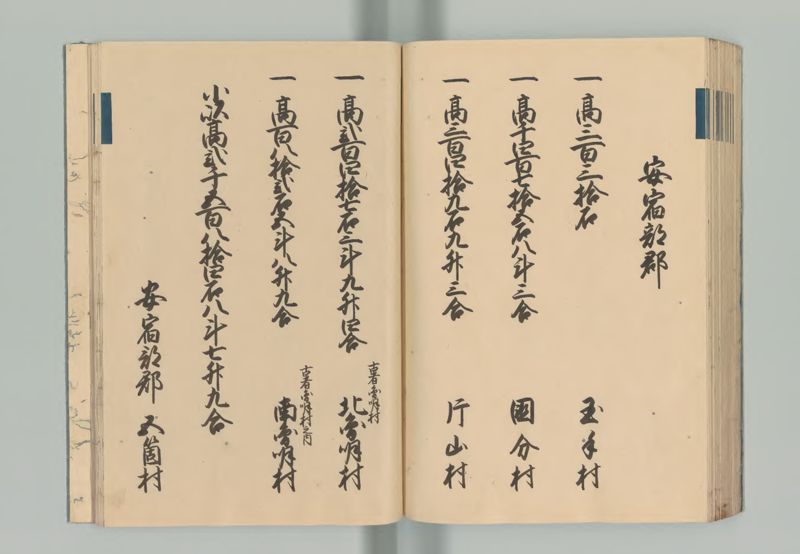 安宿部郡
一 高三百三拾石 玉手村
一 高千四百七拾五石八斗三合 國分村
一 高三百四拾九石九升三合 片山村
一 高弐百四拾七石三斗九升四合 古者圓明村 北圓明村
一 高百八拾弐石五斗八升九合 古者圓明村之内 南圓明村
小以高弐千五百八拾四石八斗七升九合
安宿部郡 五箇村